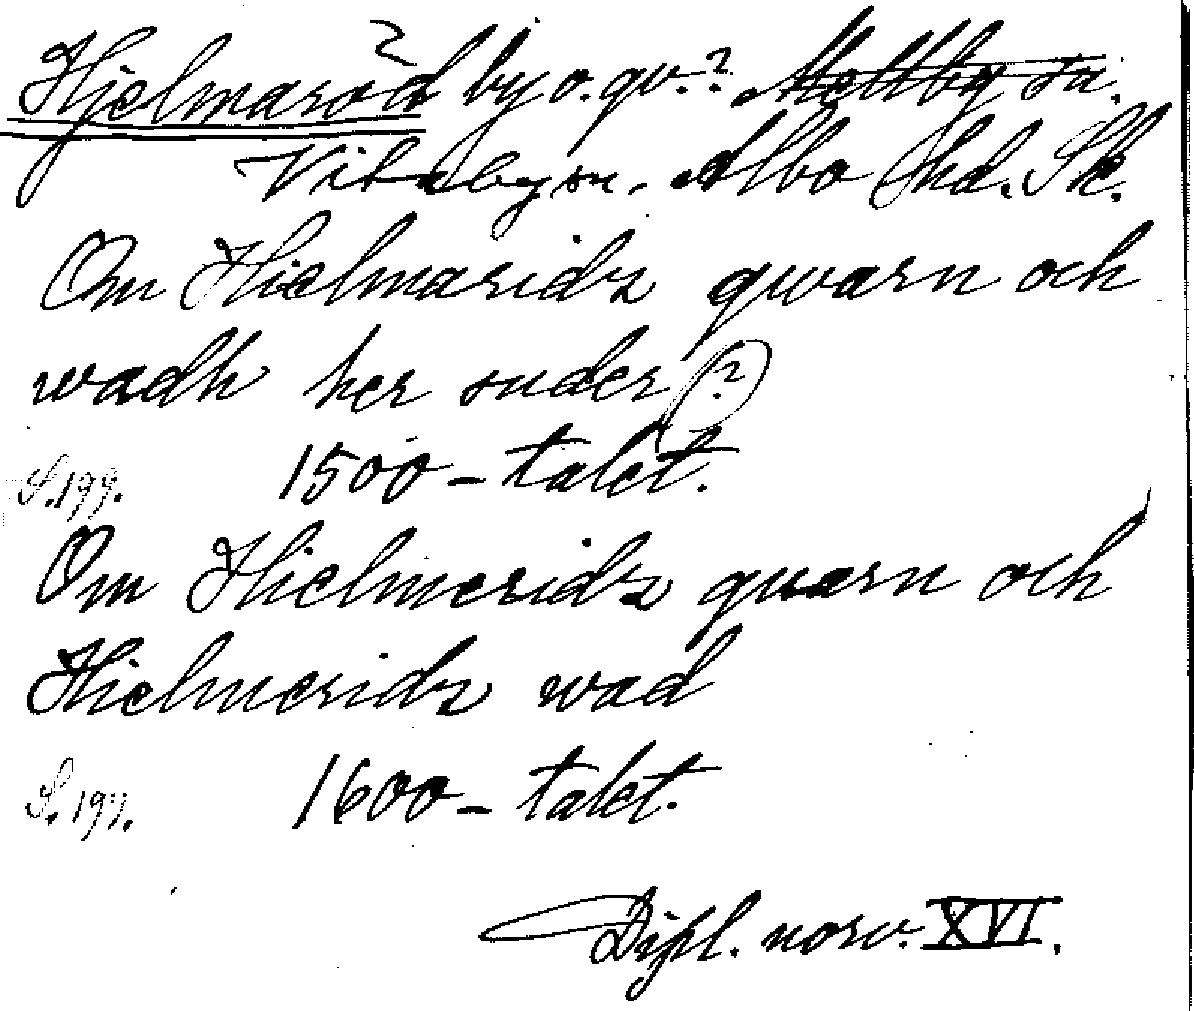 ?
Hjelmaröd by o. qv.? Mellby sn.
Vitaby sn. Albo Hd. Sk.
Om Hielmaridz qwarn och
wadh her suder (?)
S. 199. 1500-talet.
Om Hielmeridz quern och
Hielmeridz wad
S. 1600-talet.
Dipl. norv. XVI.